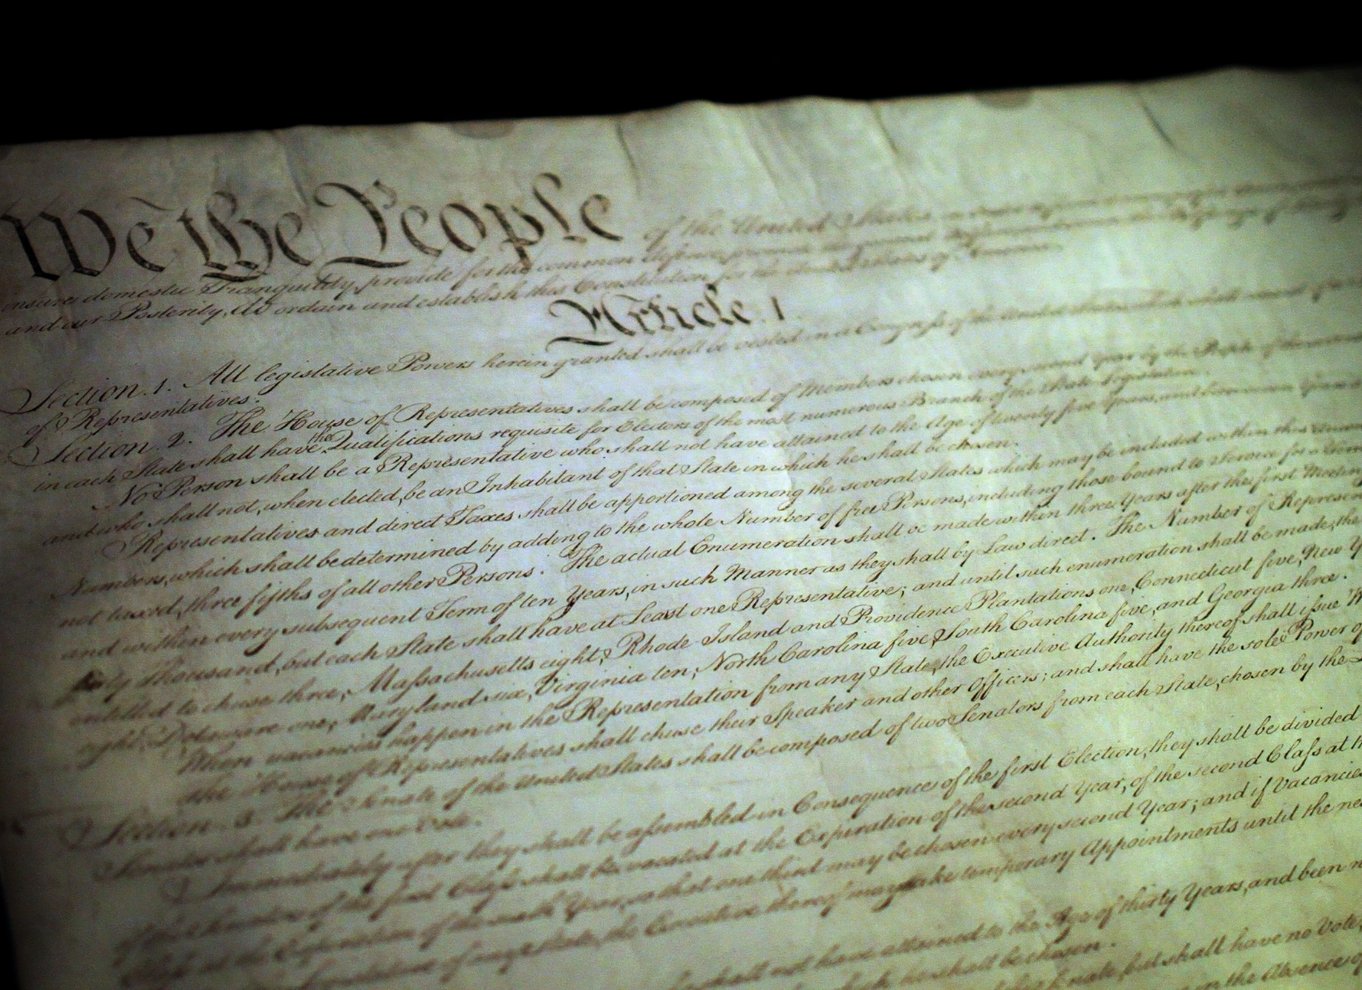 We the People of the United States
insure domestic Tranquility, provide for the common defence,
and our Posterity, do ordain and establish this Constitution for the United States of America.
Article. I.
Section. 1. All legislative Powers herein granted shall be vested in a Congress of the United States, which shall consist of
of Representatives.
Section. 2. The House of Representatives shall be composed of Members chosen every second Year by the People of the several
in each State shall have the Qualifications requisite for Electors of the most numerous Branch of the State Legislature.
No Person shall be a Representative who shall not have attained to the Age of twenty five Years, and been seven Years
and who shall not, when elected, be an Inhabitant of that State in which he shall be chosen.
Representatives and direct Taxes shall be apportioned among the several States which may be included within this Union
Numbers, which shall be determined by adding to the whole Number of free Persons, including those bound to Service for a Term
not taxed, three fifths of all other Persons. The actual Enumeration shall be made within three Years after the first Meeting
and within every subsequent Term of ten Years, in such Manner as they shall by Law direct. The Number of Represen
thirty Thousand, but each State shall have at Least one Representative; and until such enumeration shall be made, the
entitled to chuse three, Massachusetts eight, Rhode-Island and Providence Plantations one, Connecticut five, New Y
eight, Delaware one, Maryland six, Virginia ten, North Carolina five, South Carolina five, and Georgia three.
When vacancies happen in the Representation from any State, the Executive Authority thereof shall issue W
The House of Representatives shall chuse their Speaker and other Officers; and shall have the sole Power of
Section. 3. The Senate of the United States shall be composed of two Senators from each State, chosen by the
Senator shall have one Vote.
Immediately after they shall be assembled in Consequence of the first Election, they shall be divided
of the Senators of the first Class shall be vacated at the Expiration of the second Year, of the second Class at t
Class at the Expiration of the sixth Year, so that one third may be chosen every second Year; and if Vacancie
Legislature of any State, the Executive thereof may make temporary Appointments until the ne
shall not have attained to the Age of thirty Years, and been n
which he shall be chosen.
Senate, but shall have no Vote,
in the Absence of